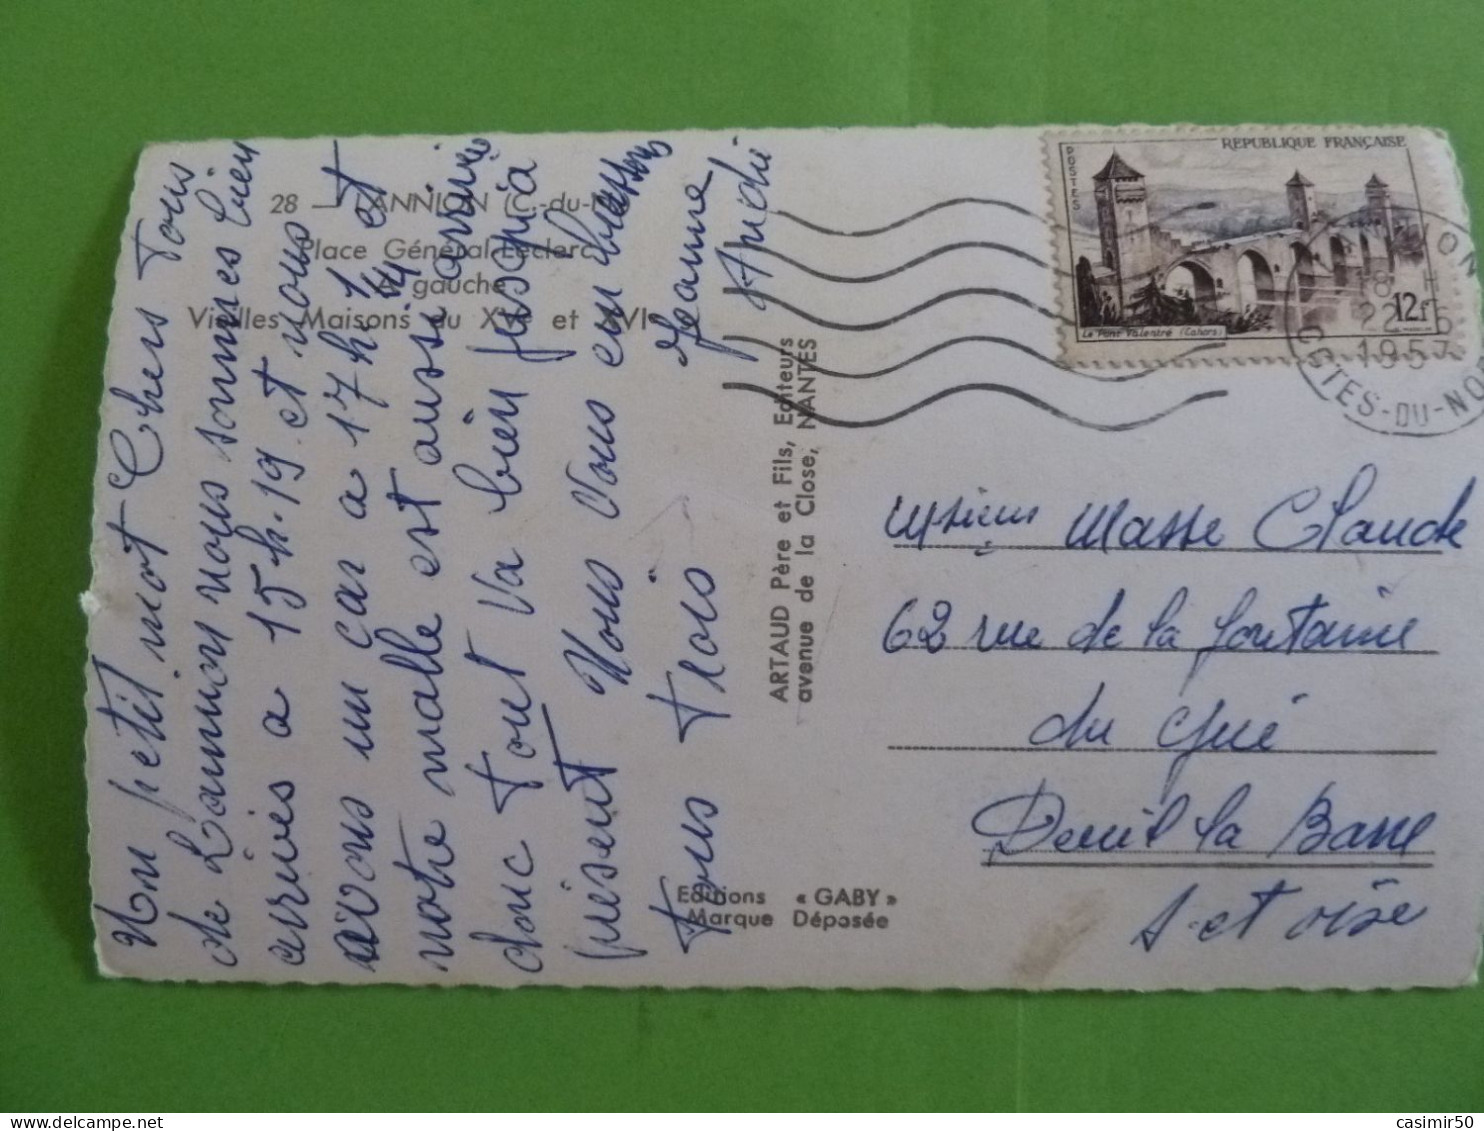 28 — LANNION (C.-du-N.)
Place Général-Leclerc
A gauche
Vieilles Maisons du XVe et XVIe
Un petit mot Chers Tous
de Lannion nous sommes bien
arrivés a 15h.19 et nous
avons un car a 17h 1/4 et
notre malle est aussi arrivée
donc Tout va bien jusqu'a
présent Nous Vous embrassons
tous trois Jeanne
André
ARTAUD Père et Fils, Editeurs
avenue de la Close, NANTES
Editions « GABY »
Marque Déposée
REPUBLIQUE FRANÇAISE
POSTES
12F
Le Pont Valentré (Cahors)
LANNION
18 H
22
1957
COTES-DU-NORD
Masse Claude
62 rue de la fontaine
du Gué
Deuil la Barre
S. et oise
casimir50